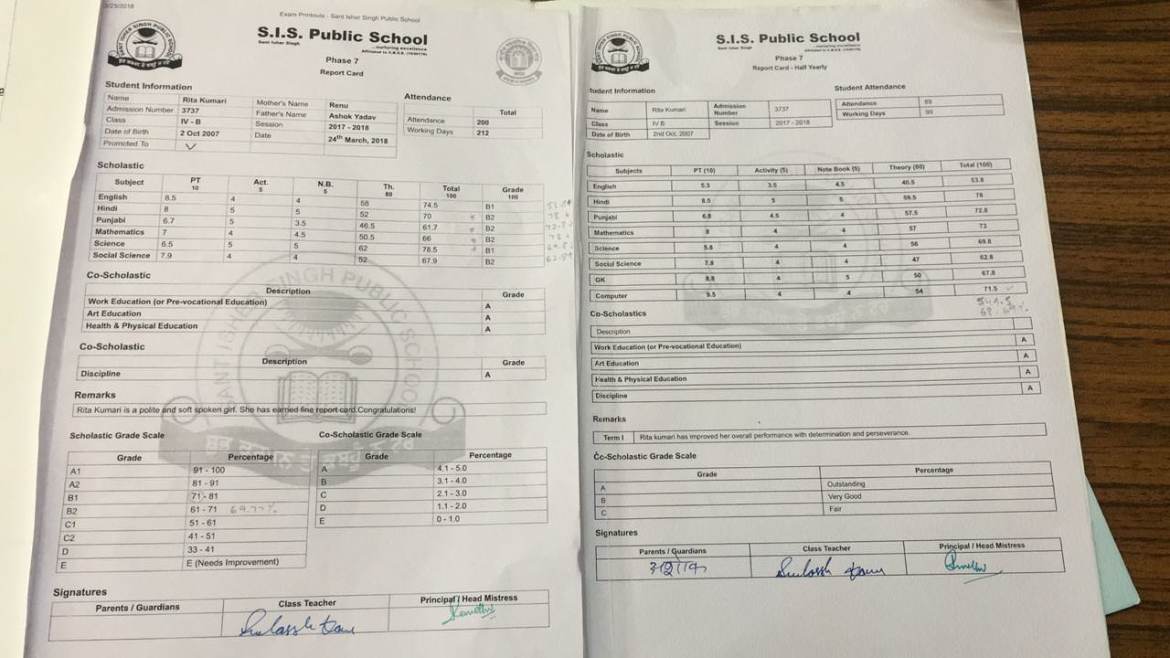 3/25/2018
Exam Printouts - Sant Isher Singh Public School
S.I.S. Public School
Sant Isher Singh
...nurturing excellence
Phase 7
Report Card
Student Information
Name Rita Kumari Mother's Name Renu
Admission Number 3737 Father's Name Ashok Yadav
Class IV - B Session 2017 - 2018
Date of Birth 2 Oct 2007 Date 24th March, 2018
Promoted To V
Attendance
Total
Attendance 200
Working Days 212
Scholastic
Subject PT 10 Act. 5 N.B. 5 Th. 80 Total 100 Grade 100
English 8.5 4 4 58 74.5 B1
Hindi 8 5 5 52 70 B2
Punjabi 6.7 5 3.5 46.5 61.7 B2
Mathematics 7 4 4.5 50.5 66 B2
Science 6.5 5 5 62 78.5 B1
Social Science 7.9 4 4 52 67.9 B2
Co-Scholastic
Description Grade
Work Education (or Pre-vocational Education) A
Art Education A
Health & Physical Education A
Co-Scholastic
Description Grade
Discipline A
Remarks
Rita Kumari is a polite and soft spoken girl. She has earned fine report card.Congratulations!
Scholastic Grade Scale
Grade Percentage
A1 91 - 100
A2 81 - 91
B1 71 - 81
B2 61 - 71 69.77%
C1 51 - 61
C2 41 - 51
D 33 - 41
E E (Needs Improvement)
Co-Scholastic Grade Scale
Grade Percentage
A 4.1 - 5.0
B 3.1 - 4.0
C 2.1 - 3.0
D 1.1 - 2.0
E 0 - 1.0
Signatures
Parents / Guardians Class Teacher Principal / Head Mistress
SANT ISHER SINGH PUBLIC SCHOOL
S.I.S. Public School
Sant Isher Singh
...nurturing excellence
Phase 7
Report Card - Half Yearly
Student Information
Name Rita Kumari Admission Number 3737
Class IV B Session 2017 - 2018
Date of Birth 2nd Oct, 2007
Student Attendance
Attendance 89
Working Days
Scholastic
Subjects PT (10) Activity (5) Note Book (5) Theory (80) Total (100)
English 5.3 3.5 4.5 40.5 53.8
Hindi 8.5 5 5 59.5 78
Punjabi 6.8 4.5 4 57.5 72.8
Mathematics 8 4 4 57 73
Science 5.8 4 4 56 69.8
Social Science 7.8 4 4 47 62.8
GK 8.8 4 5 50 67.8
Computer 9.5 4 4 54 71.5
Co-Scholastics
Description
Work Education (or Pre-vocational Education) A
Art Education A
Health & Physical Education A
Discipline A
Remarks
Term I Rita kumari has improved her overall performance with determination and perseverance.
Co-Scholastic Grade Scale
Grade Percentage
A Outstanding
B Very Good
C Fair
Signatures
Parents / Guardians Class Teacher Principal / Head Mistress